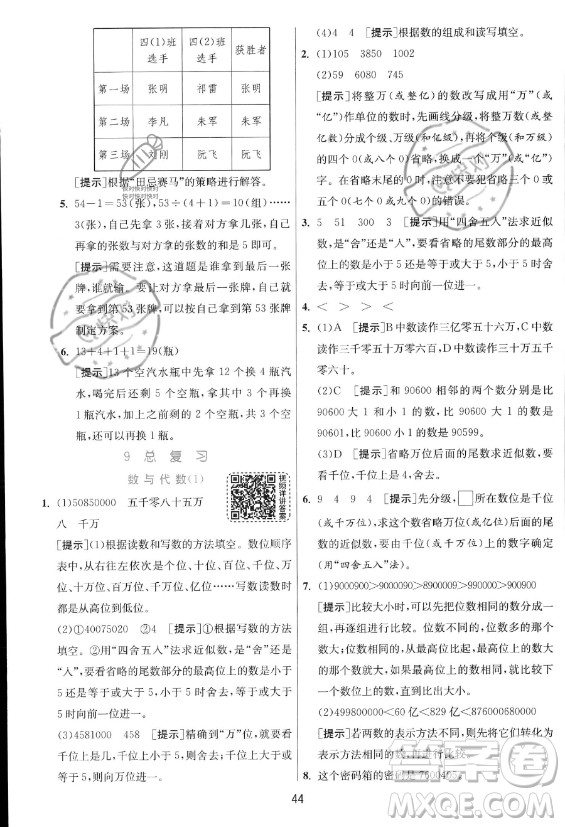 四(1)班选手 四(2)班选手 获胜者
第一场 张明 祁雷 张明
第二场 李凡 朱军 朱军
第三场 刘刚 阮飞 阮飞
[提示]根据“田忌赛马”的策略进行解答。
5. 54-1=53(张) 53÷(4+1)=10(组)……
3(张) 先拿3张,对方拿几张,自己
再拿的张数与对方拿的张数的和是5即可。
[提示]需要注意,这道题是谁拿到最后一张
牌,谁就输。要想赢,就要以拿到第53张牌
制定方案。
6. 13+4+1+1=19(瓶)
[提示]13个空汽水瓶中先拿12个换4瓶汽
水,喝完后有5个空瓶,拿其中的3个再换
1瓶汽水,加上之前剩的2个空瓶,共3个空
瓶,还可以换1瓶汽水。
9 总复习
数与代数(1)
视频详讲答案
1. (1)50850000 五千零八十五万
八 千万
[提示](1)根据读数和写数的方法填空。数位顺序
表中,从右往左依次是个位、十位、百位、千
位、万位、十万位、百万位、千万位……写数读数时
都是从高位到低位。
(2)①40075020 ②4 [提示]①根据写数的方法
填空。②用“四舍五入”法求近似数,是“舍”还是
“入”,要看省略的尾数部分的最高位上的数是小于
5还是等于或大于5,等于或大于5时向前一位进一。
(3)4581000 458 [提示]精确到“万”位,就要看
千位上是几,千位上的数小于5就舍去,等于或大
于5就向万位进一。
(4)4 4 [提示]根据数的组成和读写填空。
2. (1)105 3850 1002
(2)59 6080 745
[提示]将整万(或整亿)的数改写成用“万”(或
“亿”)作单位的数时,先画线分级,将整万数(或整
亿数)分成个级、万级(和亿级),个级(和万级)的
数都是0可省略,换成一个“万”(或“亿”)字即
可。在省略末尾的0时,不要出现少去或多去0
(四个0或八个0)的错误。
3. 5 51 300 3 [提示]用“四舍五入”法求近似
数,是“舍”还是“入”,要看省略的尾数部分的最高
位上的数是小于5还是等于或大于5,等于或大于
5时向前一位进一。
4. < > > <
5. (1)A [提示]B中数读作三亿零五十六万,C中
数读作三千零五万零六十,D中数读作三千五百万
零六十。
(2)C [提示]与90600相邻的两个数分别是比
90600大1的数和比90600小1的数,比90600大
1的数是90601,比90600小1的数是90599。
(3)D [提示]近似数是9万,要看千位上的数,就要
看千位,千位、百位、十位、个位上的数最大是9。
6. 9 4 9 4 [提示]先分级,□所在的数位是千位
(或千万位),求这个数省略万位(或亿位)后面的
尾数的近似数,要由千位(或千万位)上的数字确定
(用“四舍五入”法)。
7. (1)9000900>9000090>8900009>990000>900900
[提示]比较大小时,可以把数位相同的数分成一
组,进行比较。位数不同的,位数多的数大。位数
相同的数,从最高位比起,最高位上的数大的那个
数就大。如果最高位上的数相同,就比下一位……
直到比出大小为止。
(2)499800000<49亿<62亿<876000680000
[提示]若两数的表示方法不同,则要先转化为表示
方法相同的数再进行比较。
8. 这个密码箱的密码是7600405。
44
答案圈
MXQE.COM